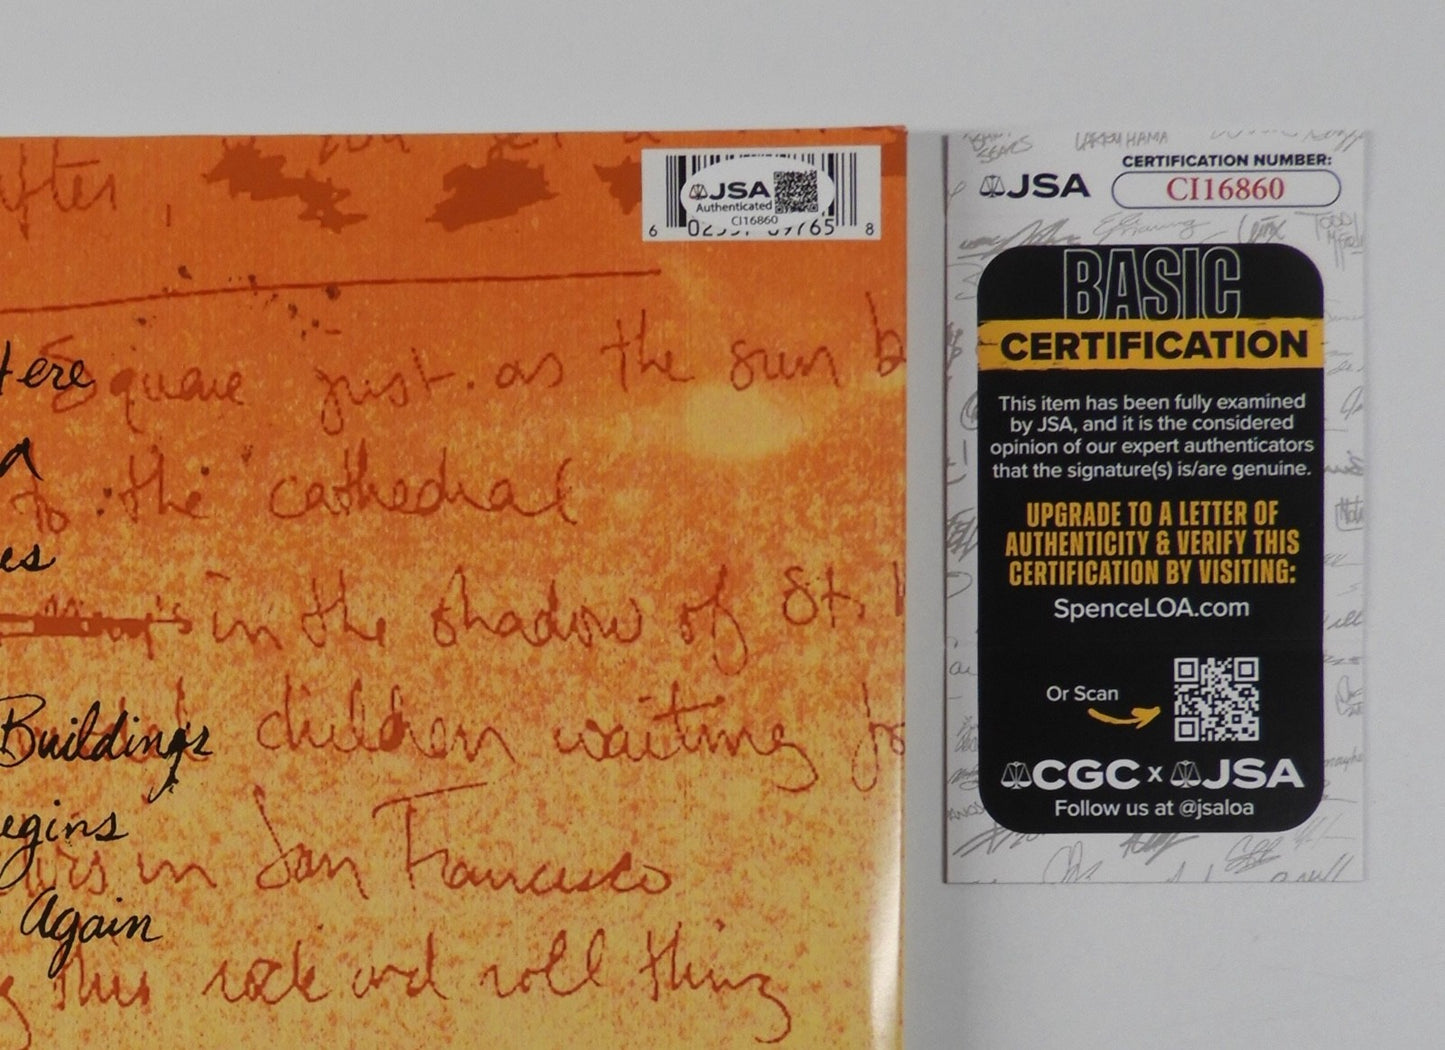 after,
you
Here
square just as the sun b
to the cathedral
es
in the shadow of St.
Buildings
children waiting
egins
in San Francisco
Again
this rock and roll thing
JSA
Authenticated
CI16860
6
8
JSA
CERTIFICATION NUMBER:
CI16860
BASIC
CERTIFICATION
This item has been fully examined
by JSA, and it is the considered
opinion of our expert authenticators
that the signature(s) is/are genuine.
UPGRADE TO A LETTER OF
AUTHENTICITY & VERIFY THIS
CERTIFICATION BY VISITING:
SpenceLOA.com
Or Scan
CGC x JSA
Follow us at @jsaloa